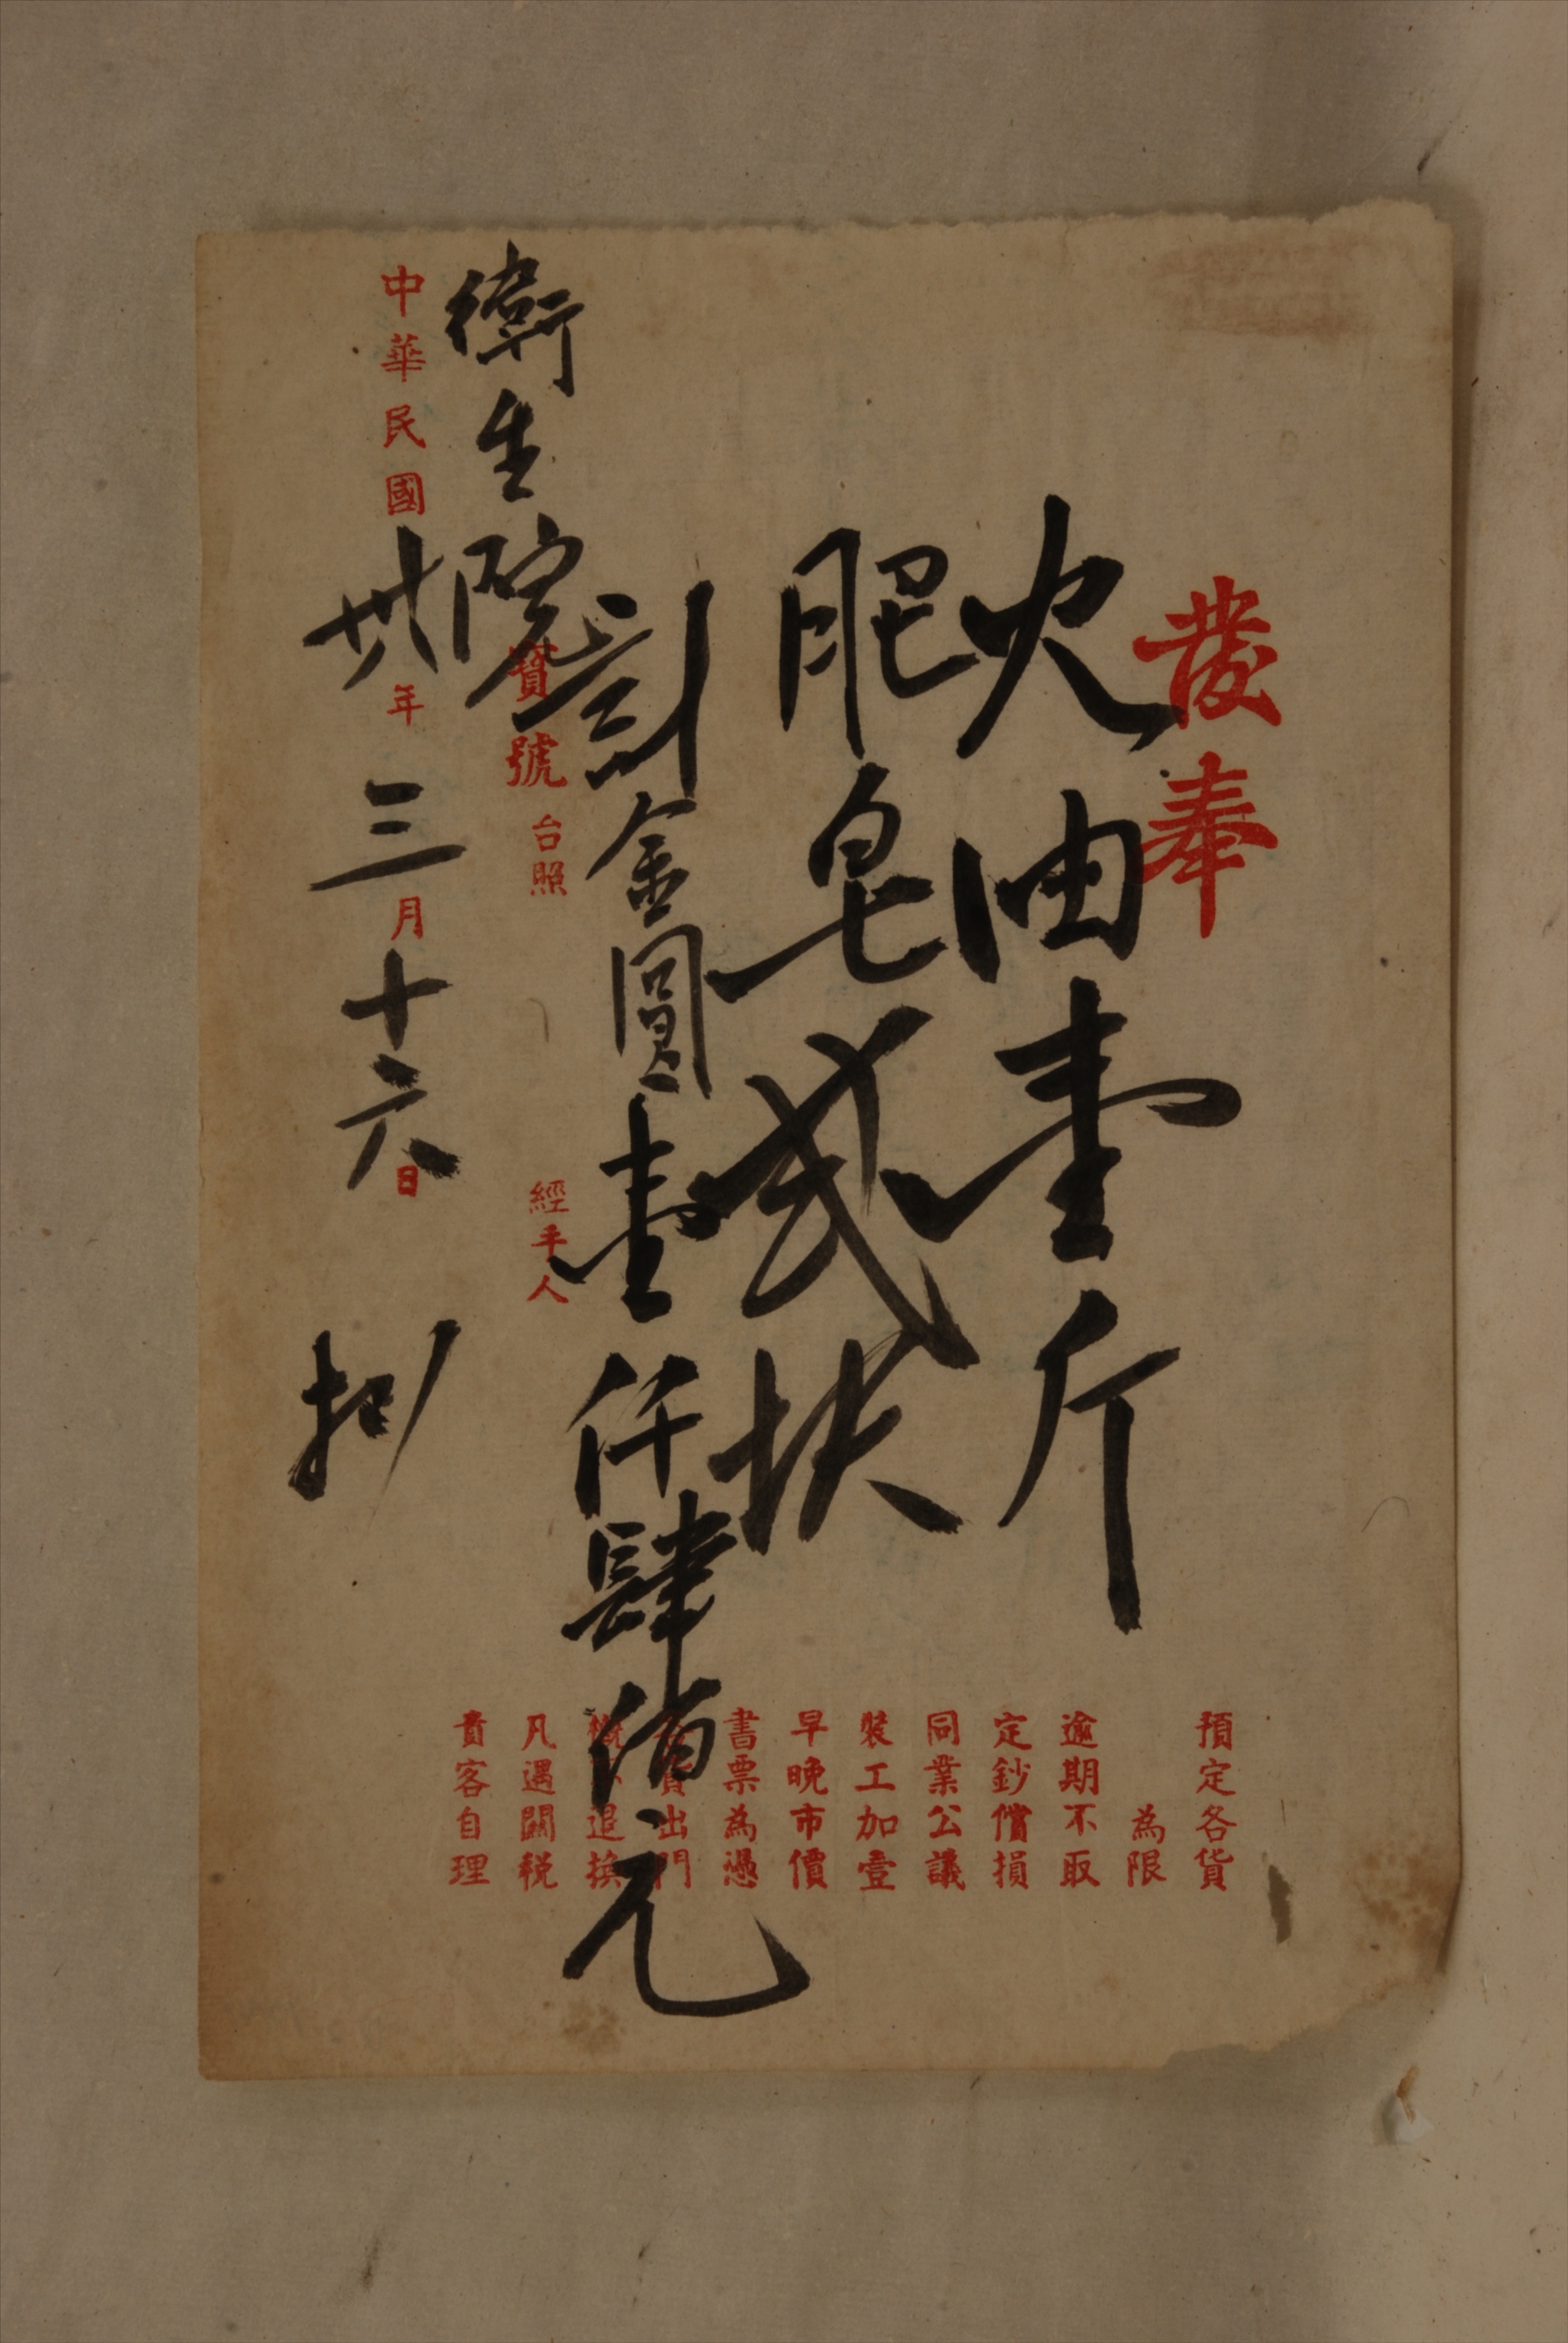 發奉
火油壹斤
肥皂貳块
計金圓壹仟肆佰元
衛生院寶號台照
經手人
中華民國卅八年三月十六日
預定各貨
為限
逾期不取
定鈔償損
同業公議
裝工加壹
早晚市價
書票為憑
貨出門
概不退換
凡遇關稅
貴客自理